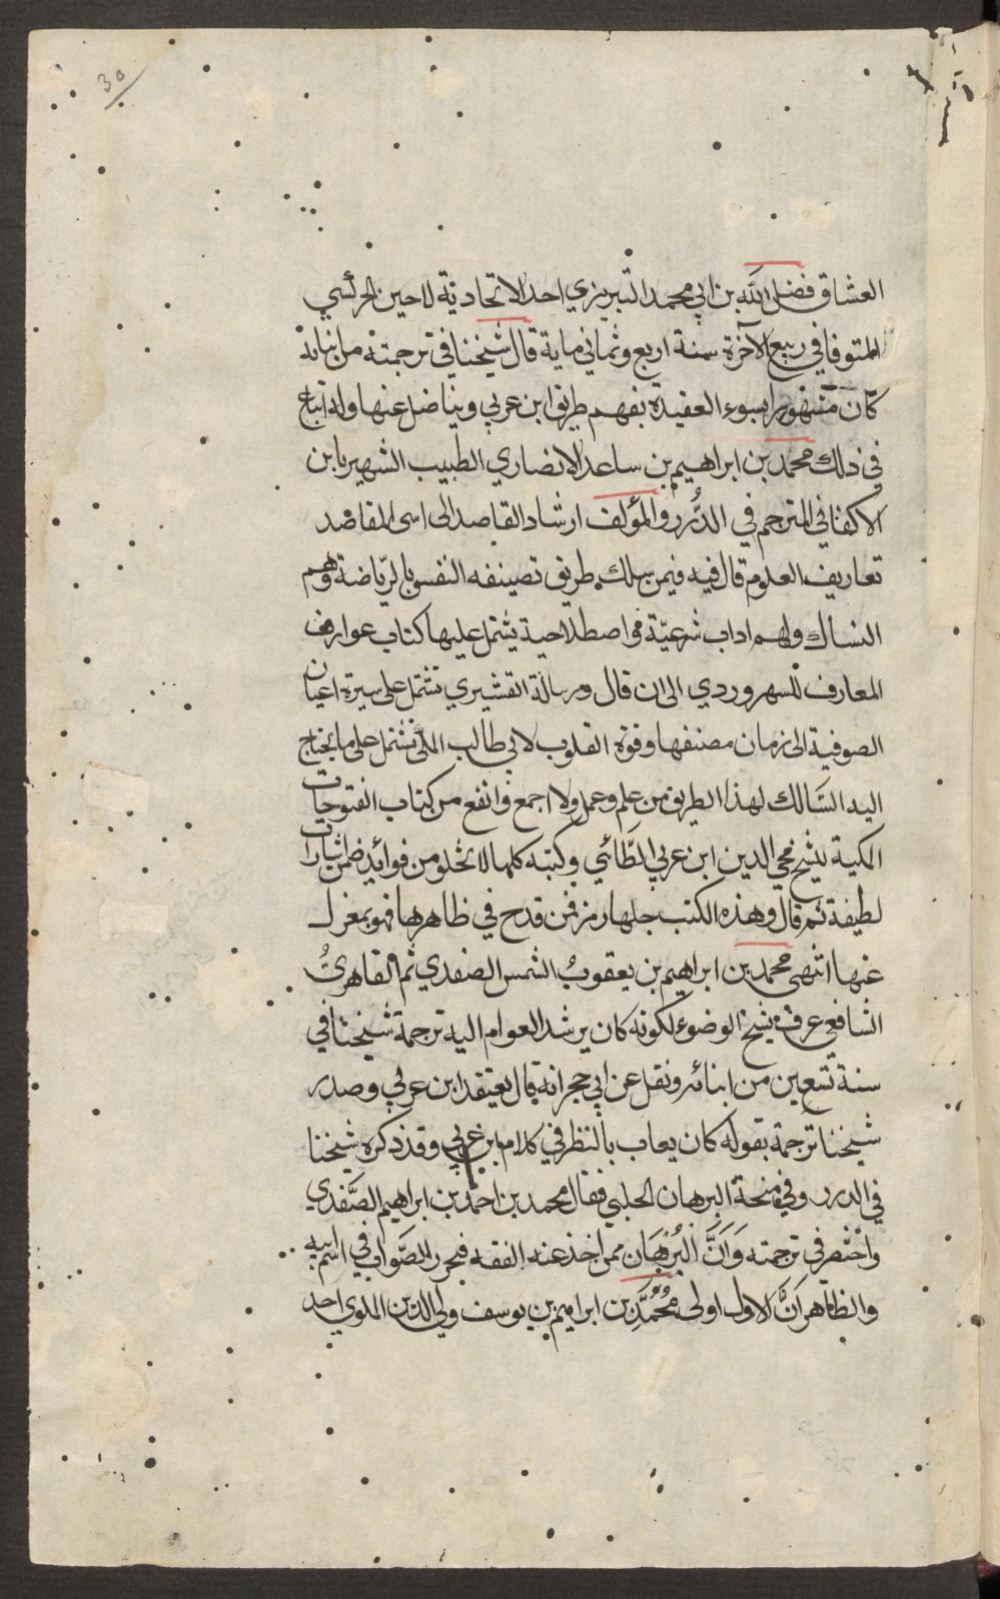 30
العشاق فضل الله بن ابي محمد التبريزي احد الاتحادية لاحين الجركسي
المتوفا في ربيع الآخرة سنة اربع وثماني ماية قال شيخنا في ترجمته من انبائه
كان مشهورا بسوء العقيدة يفهم طريق ابن عربي ويناضل عنها وله اتباع
في ذلك محمد بن ابراهيم بن ساعد الانصاري الطبيب الشهير بابن
الاكفاني المترجم في الدُّرر والمؤلف ارشاد القاصد الى اسى المقاصد
تعاريف العلوم قال فيه فيمن سلك طريق تصينفه النفس بالريّاضة وهم
النساك ولهم اداب شرعيّة واصطلاحية يشتمل عليها كتاب عوارف
المعارف للسهروردي الى ان قال ورسالة القشيري تشتمل على سيرة اعيان
الصوفية الى زمان مصنفها وقوة القلوب لابي طالب المكي تشتمل على ما يحتاج
اليه السَالك لهذا الطريق من علم وعمل ولا اجمع وانفع من كتاب الفتوحات
المكية لشيخ محي الدين ابن عربي الطَّائي وكتبه كلها لا تخلو من فوائد ضمن اشارات
لطيفة ثم قال وهذه الكتب جلها رمز فمن قدح في ظاهرها فهو بمغزل
عنها انتهى محمد بن ابراهيم بن يعقوبُ الشمس الصفدي ثم القاهريُ
الشافعي عرف بشيخ الوضوء لكونه كان يرشد العوام اليه ترجمة شيخنا في
سنة تسعين من ابنائه ونقل عن ابي حجر انه قال يعتقد ابن عربي وصدر
شيخنا ترجمة بقوله كان يعاب بالنظر في كلام ابن عربي وقد ذكره شيخنا
في الدرر وفي منحة البرهان الحلبي فقال محمد بن احمد بن ابراهيم الصَّفدي
واختصر في ترجمته وَاَنَّ البُرهَان ممن اخذ عنه الفقه فيحرر الصَّواب في اسم ابيه
والظاهر اَنَّ الاول اولى مُحُمَّدِ بن ابراهيم بن يوسف ولي الدين الملوي احد